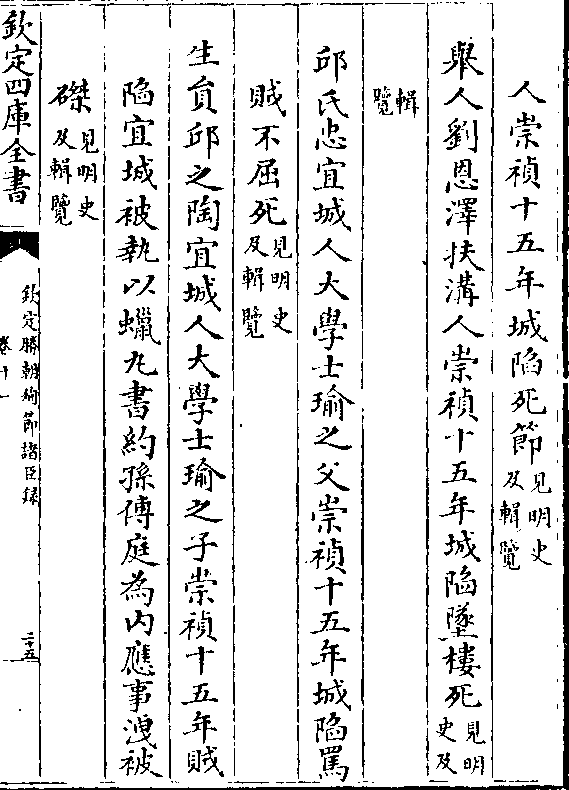 人崇禎十五年城陷死節見明史及輯覽
舉人劉恩澤扶溝人崇禎十五年城陷墜樓死見明史及
輯覽
邱民忠宜城人大學士瑜之父崇禎十五年城陷罵
賊不屈死見明史及輯覽
生員邱之陶宜城人大學士瑜之子崇禎十五年賊
陷宜城被執以蠟丸書約孫傳庭為内應事洩被
磔見明史及輯覽
欽定四庫全書
欽定勝朝殉節諸臣録
卷十一
二十五